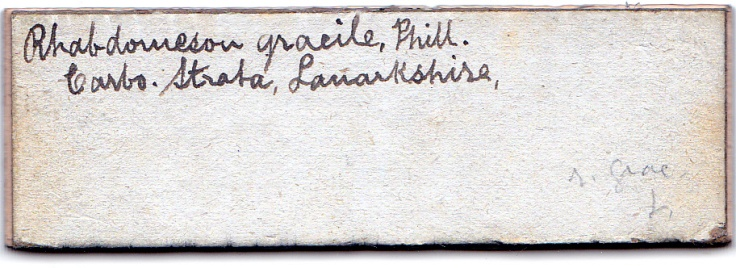 Rhabdomeson gracile, Phill.
Carbo. Strata, Lanarkshire,
r. grac.